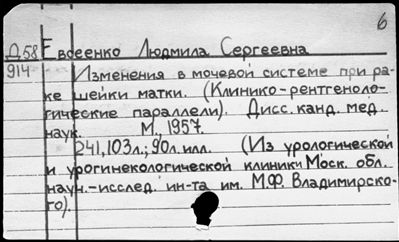 6
Д58 Евсеенко Людмила Сергеевна
914 Изменения в мочевой системе при ра-
ке шейки матки. (Клинико-рентгеноло-
гические параллели). Дисс. канд. мед.
наук. М., 1957.
241, 103 л.; 90 л. илл. (Из урологической
и урогинекологической клиники Моск. обл.
научн.-исслед. ин-та им. М.Ф. Владимирско-
го).